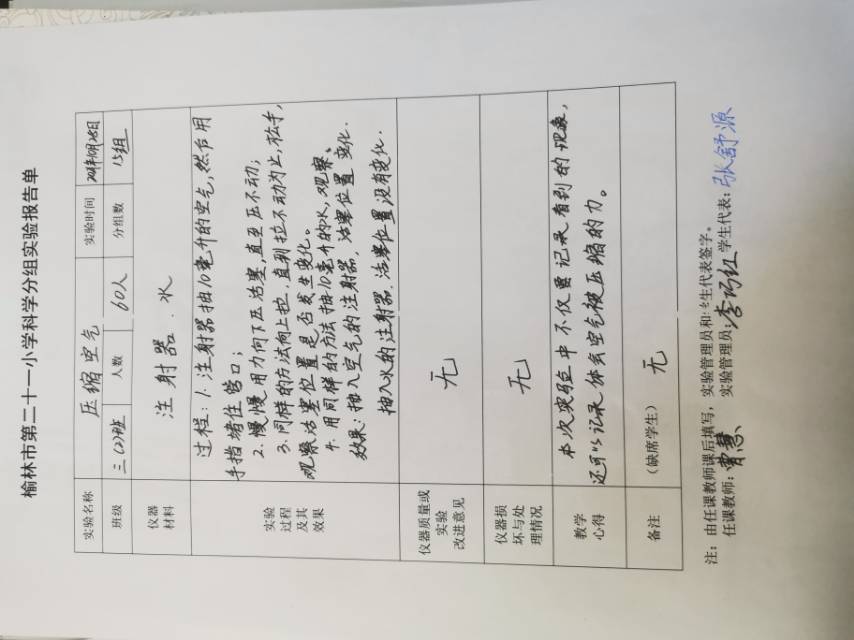 榆林市第二十一小学科学分组实验报告单
实验名称 压缩空气 实验时间 2021年10月28日
班级 三(2)班 人数 60人 分组数 15组
仪器材料 注射器、水
实验过程及其效果
过程:1.注射器抽10毫升的空气,然后用
手指堵住管口;
2.慢慢用力向下压活塞,直至压不动;
3.同样的方法向上拉,直到拉不动为止,松手,
观察活塞位置是否发生变化。
4.用同样的方法抽10毫升的水,观察。
效果:抽入空气的注射器,活塞位置变化.
抽入水的注射器,活塞位置没有变化.
仪器质量或实验改进意见 无
仪器损坏与处理情况 无
教学心得
本次实验中不仅要记录看到的现象,
还可以记录体会空气被压缩的力。
备注 (缺席学生) 无
注:由任课教师课后填写,实验管理员和学生代表签字。
任课教师:曹慧 实验管理员:李巧红 学生代表:张舒源